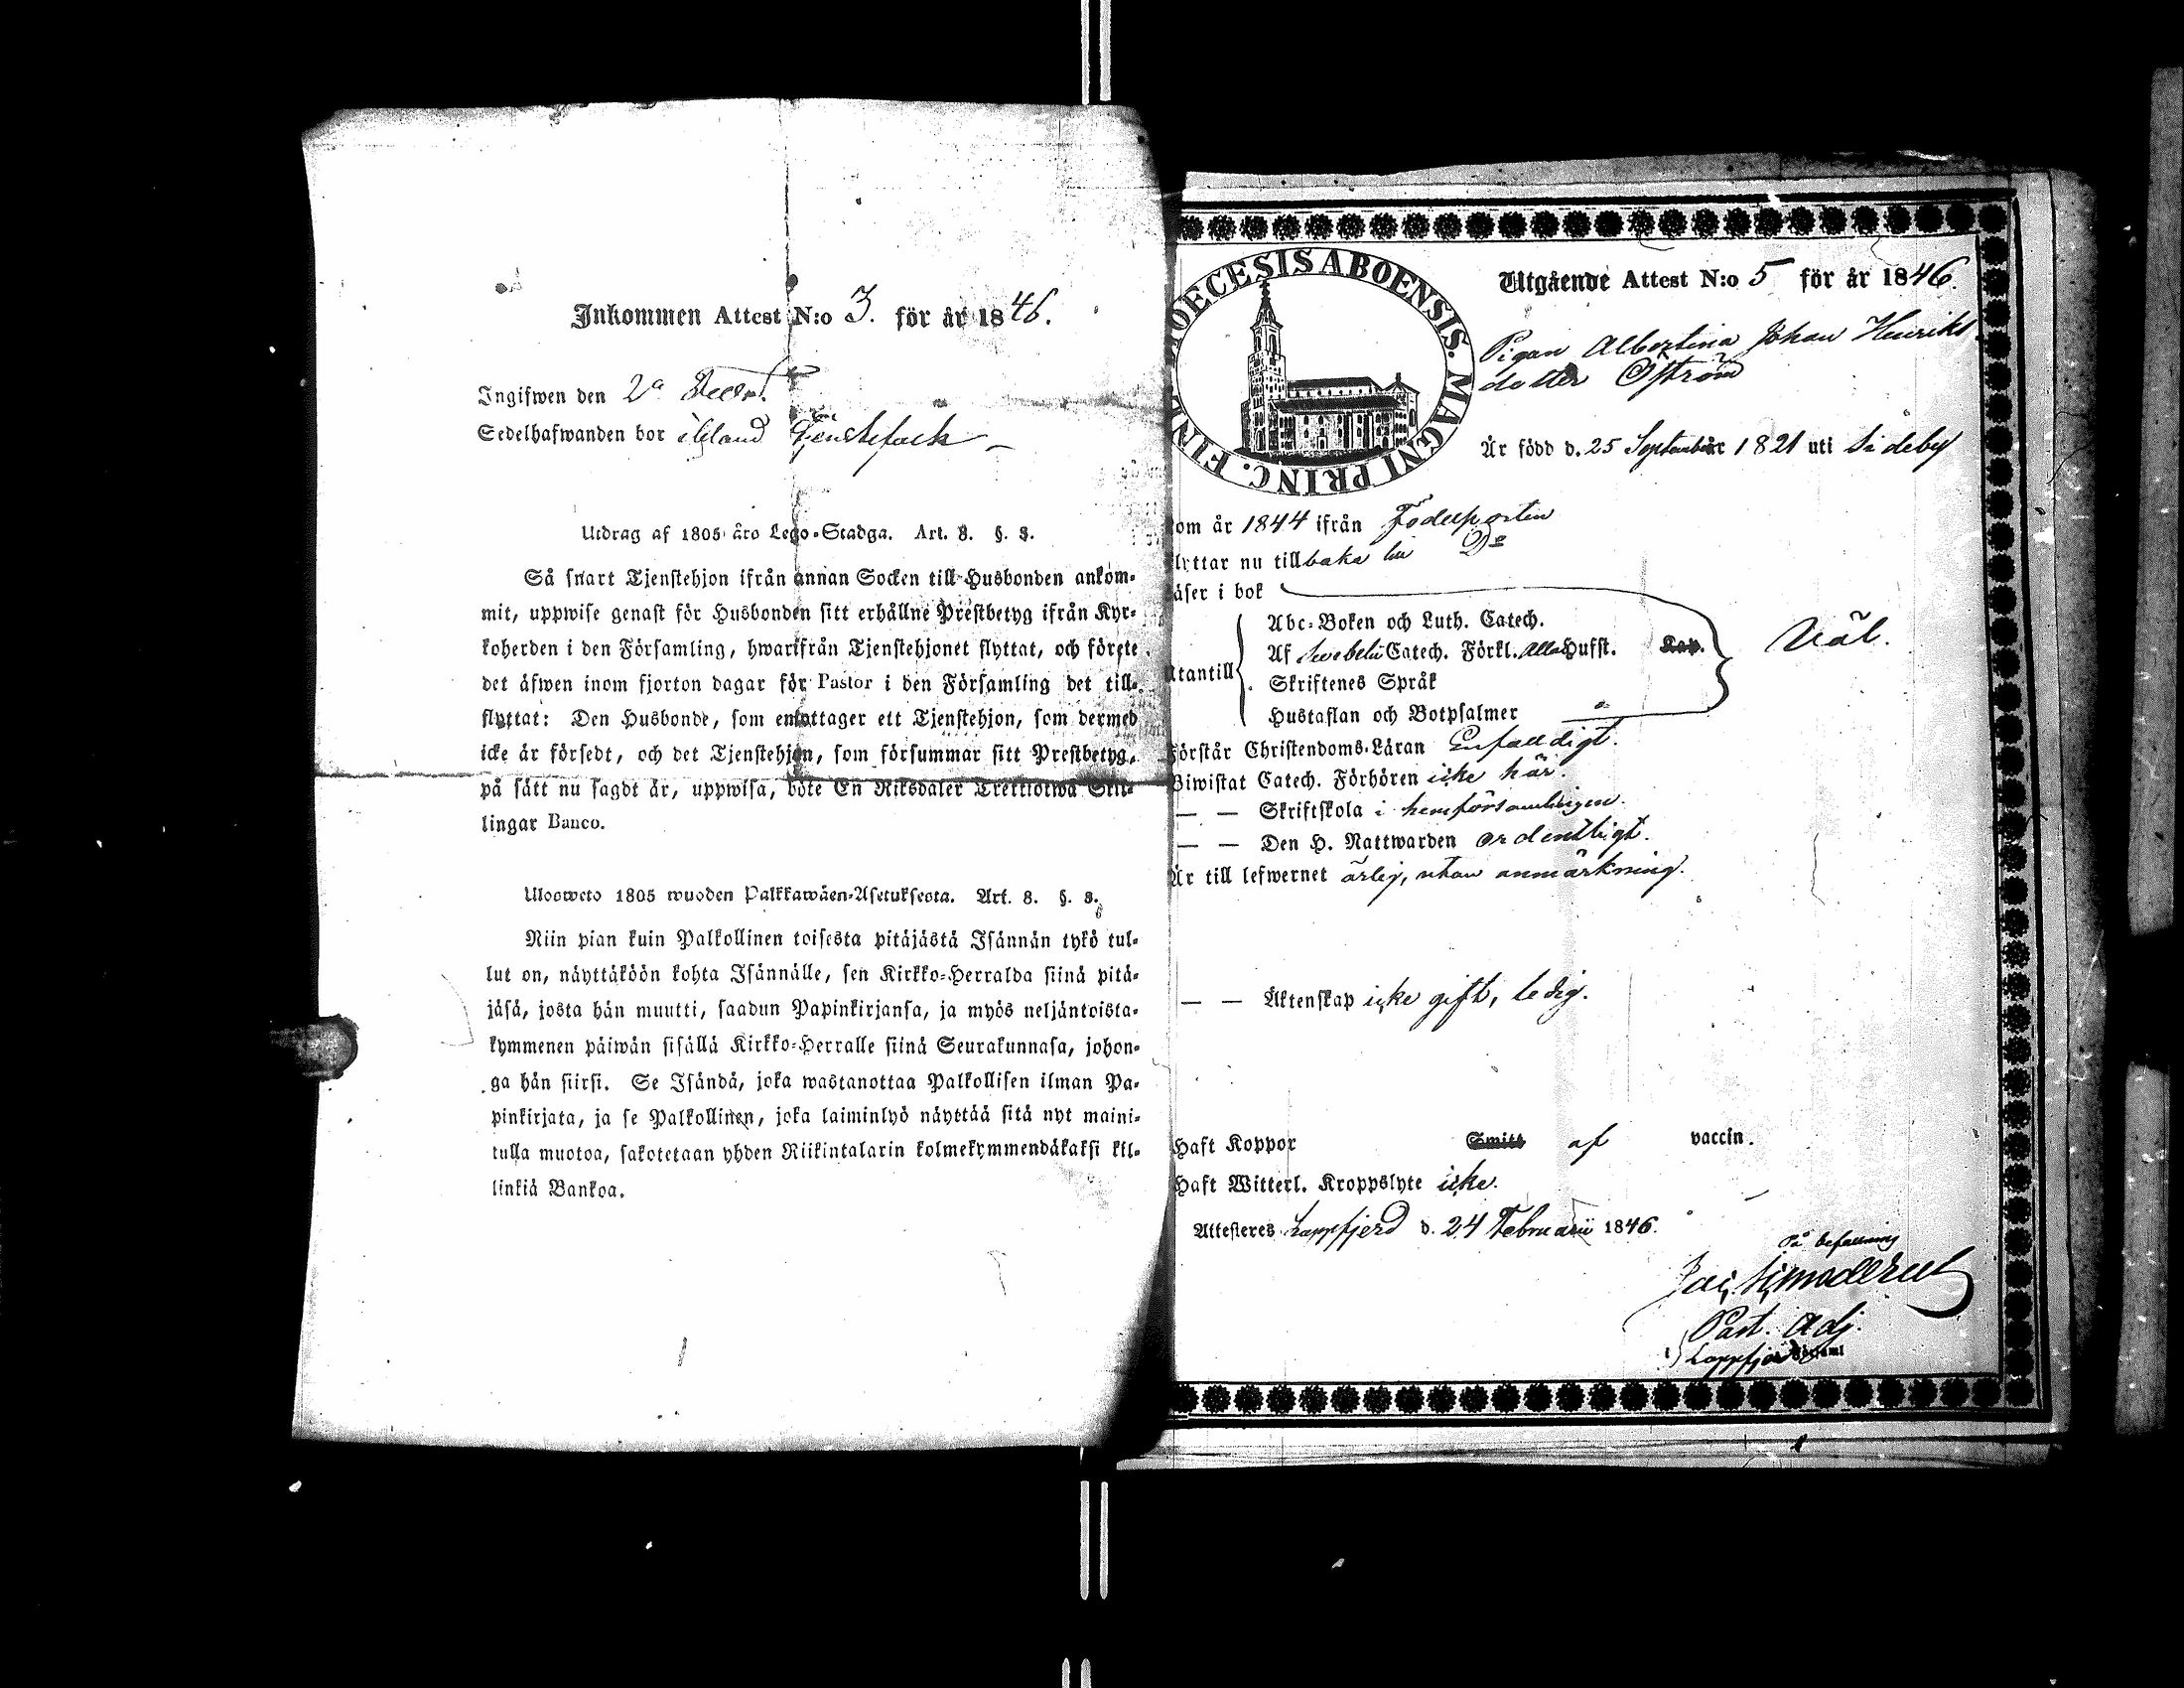 Inkommen Attest N:o 3. för år 1846.
Ingifwen den 2a
Sedelhafwanden bor ibland Tjenstefolk
Utdrag af 1805 åro Lego-Stadga. Art. 8. §. 8.
Så snart Tjenstehjon ifrån annan Socken till Husbonden ankom-
mit, uppwise genast för Husbonden sitt erhållne Prestbetyg ifrån Kyr-
koherden i den Församling, hwarifrån Tjenstehjonet flyttat, och förete
det äfwen inom fjorton dagar för Pastor i den Församling det till-
flyttat: Den Husbonde, som emottager ett Tjenstehjon, som dermed
icke är försedt, och det Tjenstehjon, som försummar sitt Prestbetyg,
på sätt nu sagdt är, uppwisa, böte En Riksdaler Trettiotwå Skil-
lingar Banco.
Ulosweto 1805 wuoden Palkkawäen-Asetuksesta. Art. 8. §. 8.
Niin pian kuin Palkollinen toisesta pitäjästä Isännän tykö tul-
lut on, näyttäköön kohta Isännälle, sen Kirkko-Herralda siinä pitä-
jäsä, josta hän muutti, saadun Papinkirjansa, ja myös neljäntoista-
kymmenen päiwän sisällä Kirkko-Herralle siinä Seurakunnasa, johon-
ga hän siirsi. Se Isändä, joka wastanottaa Palkollisen ilman Pa-
pinkirjata, ja se Palkollinen, joka laiminlyö näyttää sitä nyt maini-
tulla muotoa, sakotetaan yhden Riikintalarin kolmekymmendäkaksi kil-
linkiä Bankoa.
OECESIS ABOENSIS. MAGNI PRINC. FIN
Utgående Attest N:o 5 för år 1846.
Pigan Albertina Johan Henriks
dotter Öström
Är född d. 25 September 1821 uti Sideby
om år 1844 ifrån Födelseorten
lyttar nu tillbaka till Do
äser i bok
Abc-Boken och Luth. Catech.
Af Svebelii Catech. Förkl. Alla Husst. Kap.
Utantill
Skriftenes Språk
Väl.
Hustaflan och Botpsalmer
Förstår Christendoms-Läran Enfaldigt.
Biwistat Catech. Förhören icke här.
— — Skriftskola i hemförsamlingen.
— — Den H. Nattwarden ordentligt.
Är till lefwernet ärlig, utan anmärkning.
— — Äktenskap icke gift, ledig.
Haft Koppor Smitt af vaccin.
Haft Witterl. Kroppslyte icke.
Attesteres Lappfjerd d. 24 Februarii 1846.
På befallning
Past. Adj.
i Lappfjerd Församl